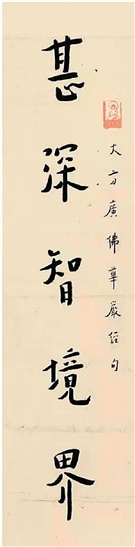 大方廣佛華嚴經句
甚深智境界